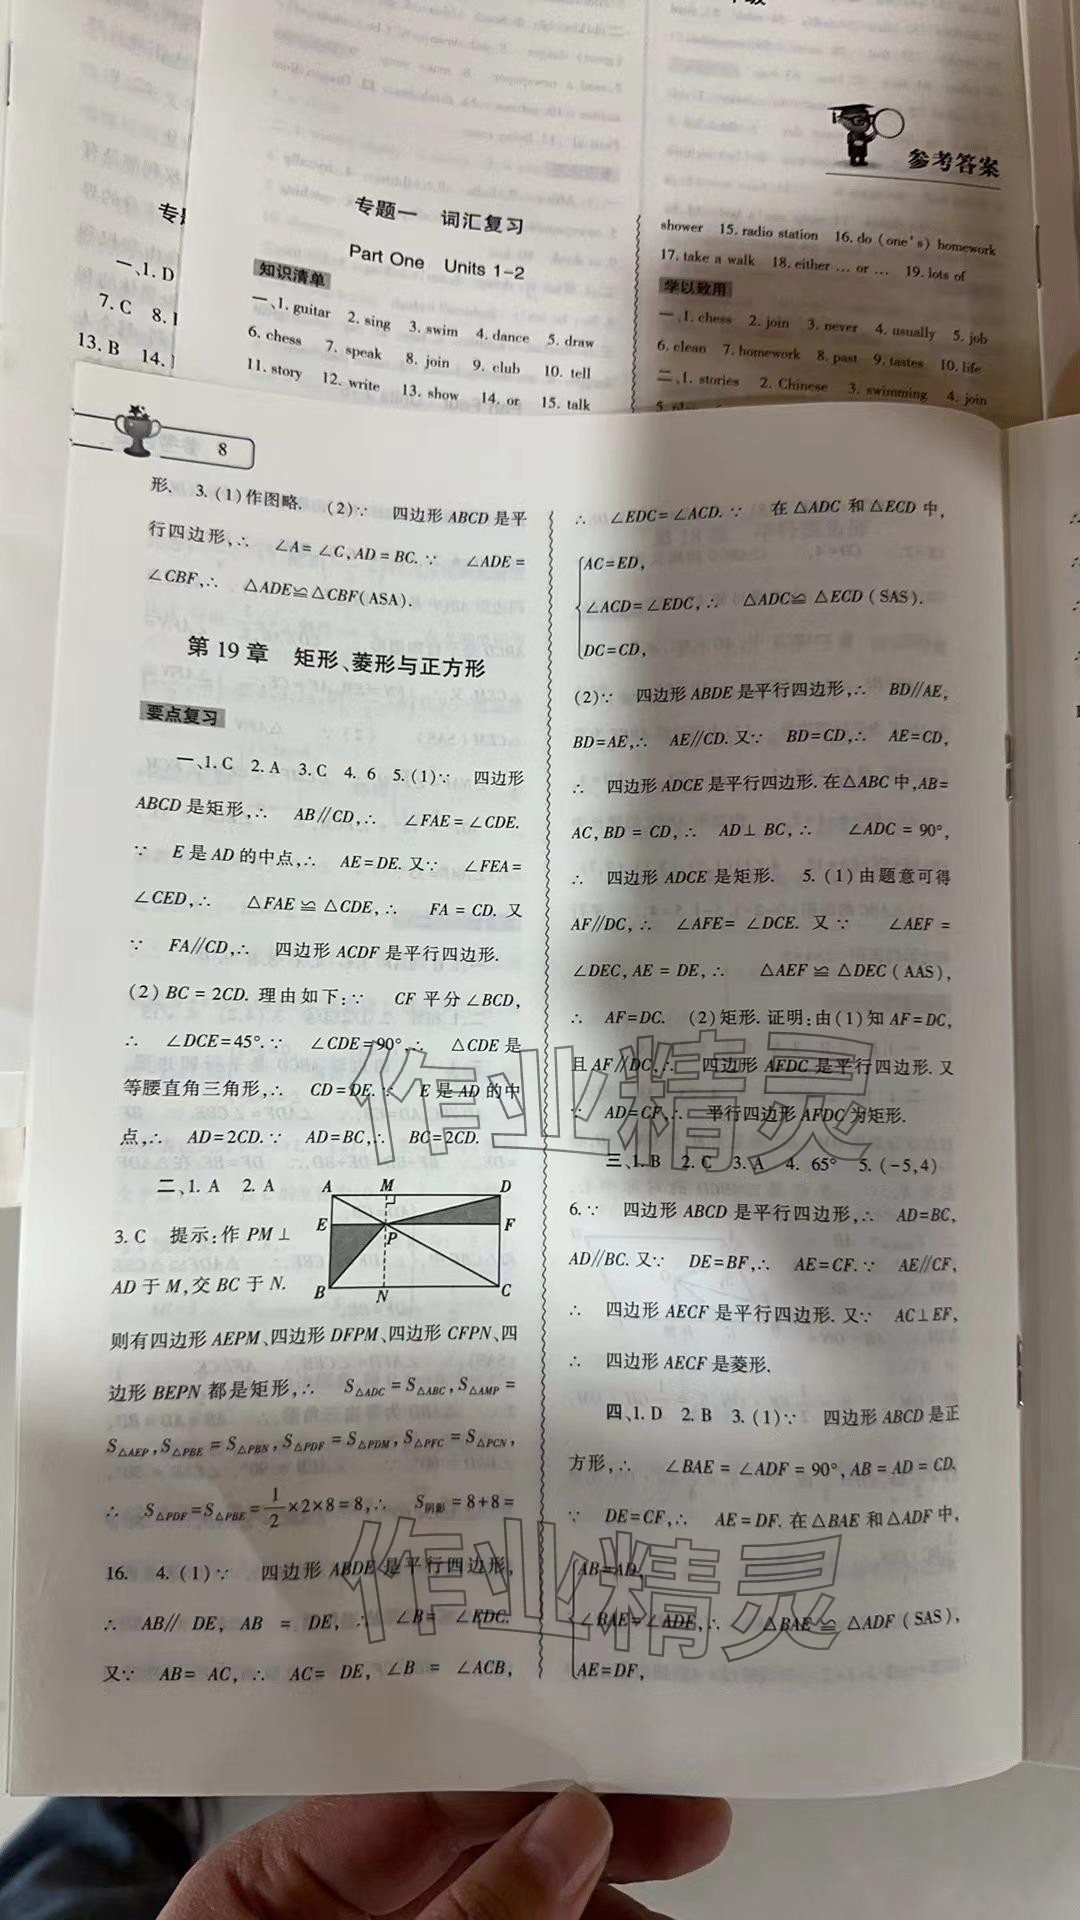 参考答案
专题一 词汇复习
Part One Units 1-2
知识清单
一、1. guitar 2. sing 3. swim 4. dance 5. draw
6. chess 7. speak 8. join 9. club 10. tell
11. story 12. write 13. show 14. or 15. talk
shower 15. radio station 16. do (one's) homework
17. take a walk 18. either … or … 19. lots of
学以致用
一、1. chess 2. join 3. never 4. usually 5. job
6. clean 7. homework 8. past 9. tastes 10. life
二、1. stories 2. Chinese 3. swimming 4. join
一、1. D
7. C 8.
13. B 14.
8
形. 3. (1)作图略. (2)∵ 四边形ABCD是平
行四边形,∴ ∠A=∠C,AD=BC. ∵ ∠ADE=
∠CBF,∴ △ADE≌△CBF(ASA).
第19章 矩形、菱形与正方形
要点复习
一、1. C 2. A 3. C 4. 6 5. (1)∵ 四边形
ABCD是矩形,∴ AB∥CD,∴ ∠FAE=∠CDE.
∵ E是AD的中点,∴ AE=DE. 又∵ ∠FEA=
∠CED,∴ △FAE≌△CDE,∴ FA=CD. 又
∵ FA∥CD,∴ 四边形ACDF是平行四边形.
(2) BC=2CD. 理由如下:∵ CF平分∠BCD,
∴ ∠DCE=45°. ∵ ∠CDE=90°,∴ △CDE是
等腰直角三角形,∴ CD=DE. ∵ E是AD的中
点,∴ AD=2CD. ∵ AD=BC,∴ BC=2CD.
二、1. A 2. A
3. C 提示:作PM⊥
AD于M,交BC于N.
A M D
E P F
B N C
则有四边形AEPM、四边形DFPM、四边形CFPN、四
边形BEPN都是矩形,∴ S△ADC=S△ABC,S△AMP=
S△AEP,S△PBE=S△PBN,S△PDF=S△PDM,S△PFC=S△PCN,
∴ S△PDF=S△PBE=1/2×2×8=8,∴ S阴影=8+8=
16. 4. (1)∵ 四边形ABDE是平行四边形,
∴ AB∥DE,AB=DE,∴ ∠B=∠EDC.
又∵ AB=AC,∴ AC=DE,∠B=∠ACB,
∴ ∠EDC=∠ACD. ∵ 在△ADC和△ECD中,
AC=ED,
∠ACD=∠EDC,∴ △ADC≌△ECD(SAS).
DC=CD,
(2)∵ 四边形ABDE是平行四边形,∴ BD∥AE,
BD=AE,∴ AE∥CD. 又∵ BD=CD,∴ AE=CD,
∴ 四边形ADCE是平行四边形. 在△ABC中,AB=
AC,BD=CD,∴ AD⊥BC,∴ ∠ADC=90°,
∴ 四边形ADCE是矩形. 5. (1)由题意可得
AF∥DC,∴ ∠AFE=∠DCE. 又∵ ∠AEF=
∠DEC,AE=DE,∴ △AEF≌△DEC(AAS),
∴ AF=DC. (2)矩形. 证明:由(1)知AF=DC,
且AF∥DC,∴ 四边形AFDC是平行四边形. 又
∵ AD=CF,∴ 平行四边形AFDC为矩形.
三、1. B 2. C 3. A 4. 65° 5. (-5,4)
6. ∵ 四边形ABCD是平行四边形,∴ AD=BC,
AD∥BC. 又∵ DE=BF,∴ AE=CF. ∵ AE∥CF,
∴ 四边形AECF是平行四边形. 又∵ AC⊥EF,
∴ 四边形AECF是菱形.
四、1. D 2. B 3. (1)∵ 四边形ABCD是正
方形,∴ ∠BAE=∠ADF=90°,AB=AD=CD.
∵ DE=CF,∴ AE=DF. 在△BAE和△ADF中,
AB=AD,
∠BAE=∠ADF,∴ △BAE≌△ADF(SAS),
AE=DF,
作业精灵
作业精灵